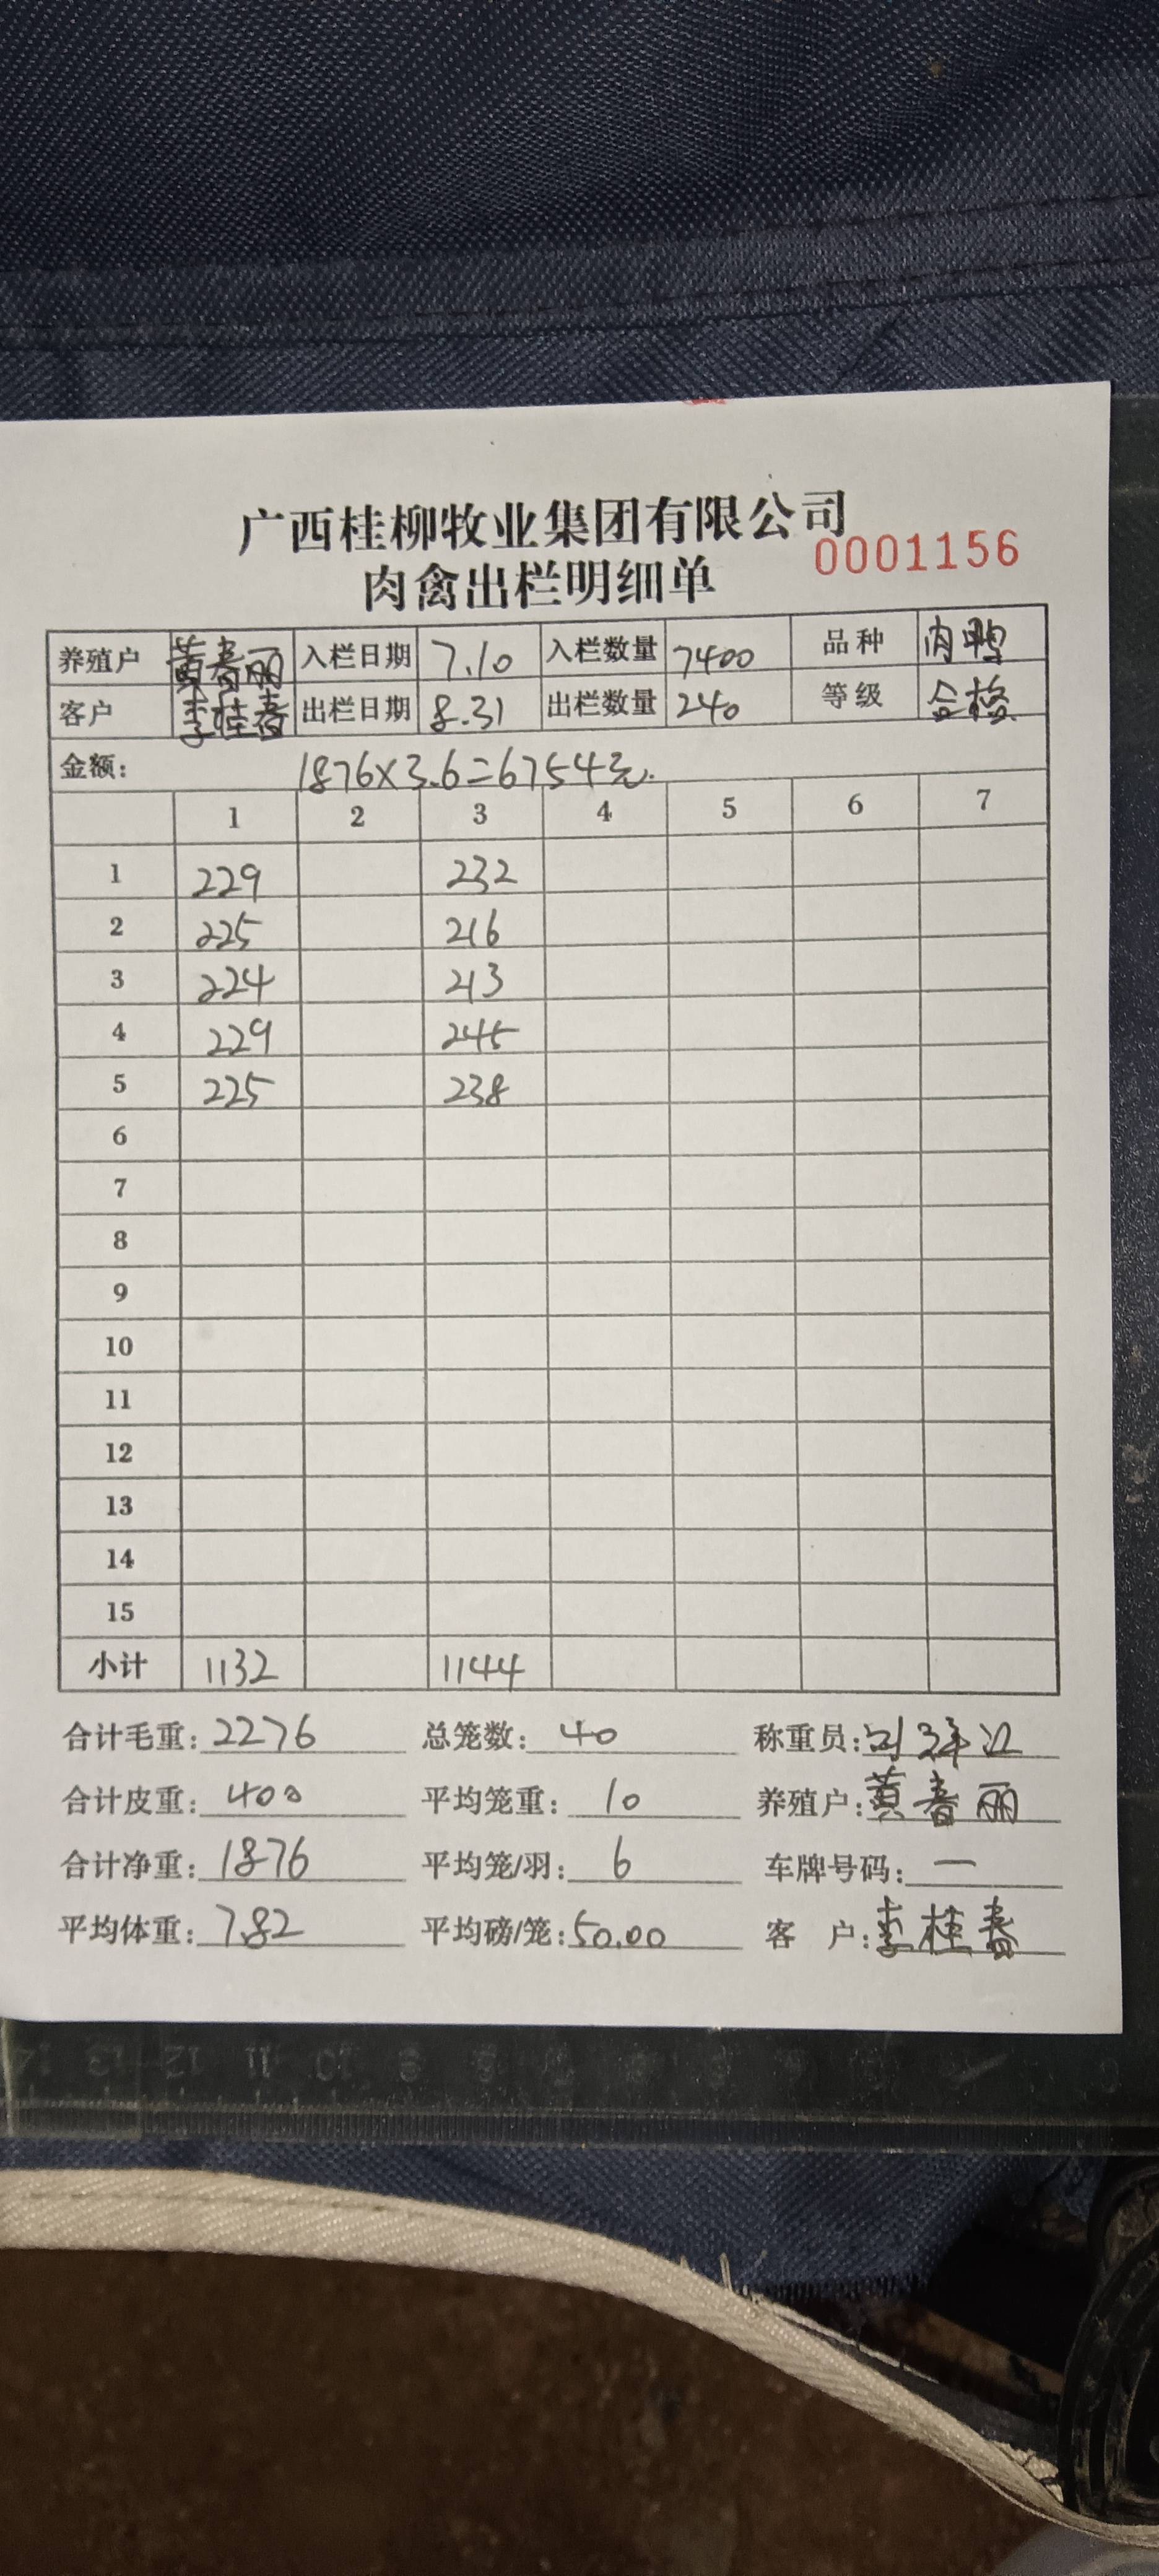 广西桂柳牧业集团有限公司
0001156
肉禽出栏明细单
养殖户 黄春丽 入栏日期 7.10 入栏数量 7400 品种 肉鸭
客户 李桂春 出栏日期 8.31 出栏数量 240 等级 合格
金额: 1876×3.6=6754元.
1 2 3 4 5 6 7
1 229 232
2 225 216
3 224 213
4 229 245
5 225 238
6
7
8
9
10
11
12
13
14
15
小计 1132 1144
合计毛重: 2276 总笼数: 40 称重员:
合计皮重: 400 平均笼重: 10 养殖户: 黄春丽
合计净重: 1876 平均笼/羽: 6 车牌号码: 一
平均体重: 7.82 平均磅/笼: 50.00 客户: 李桂春
14 13 12 11 10 9 8 7 6